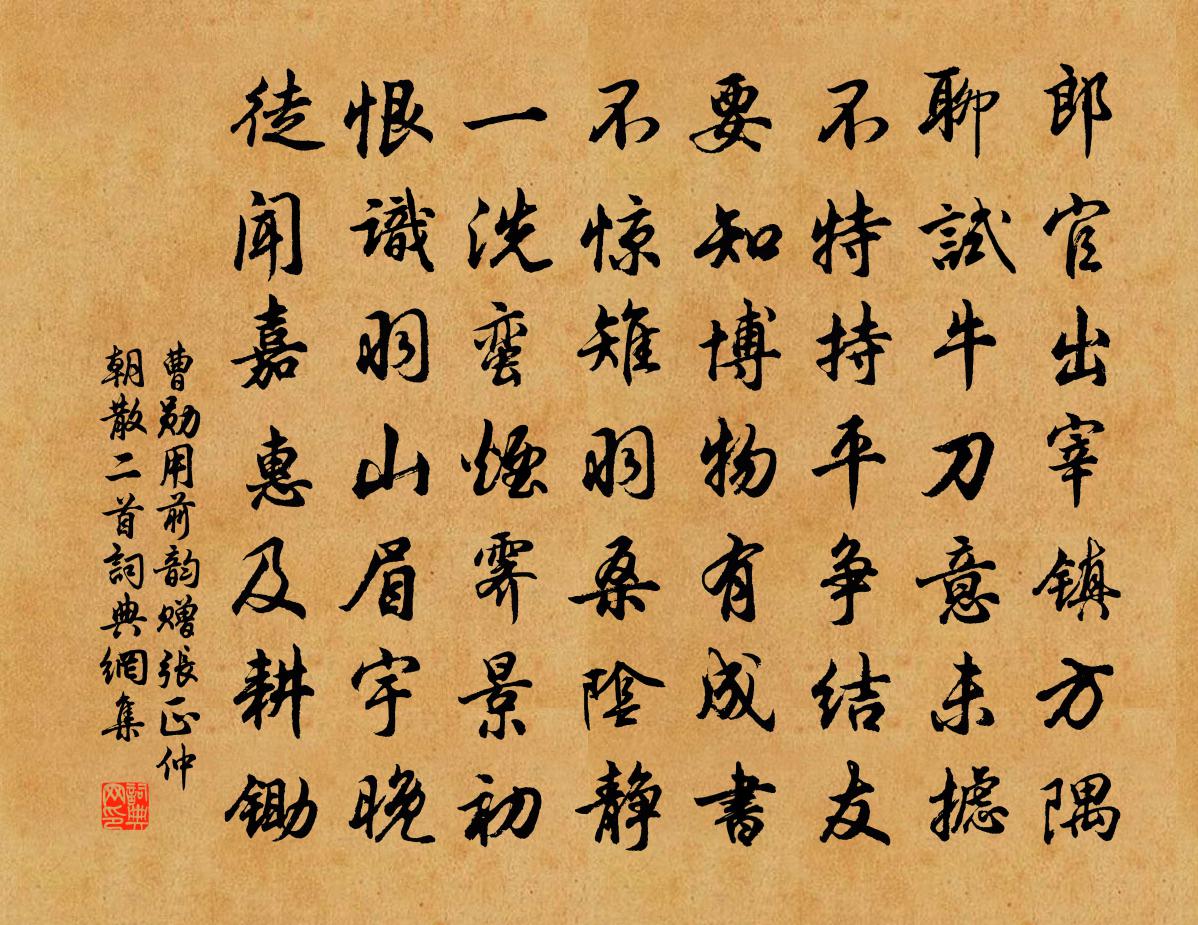 郎官出宰镇方隅
聊試牛刀意未摅
不特持平争结友
要知博物有成書
不惊雉羽桑陰静
一洗蛮煙霁景初
恨識羽山眉宇晚
徒闻嘉惠及耕锄
曹勋用前韵赠張正仲
朝散二首詞典網集
詞典网印